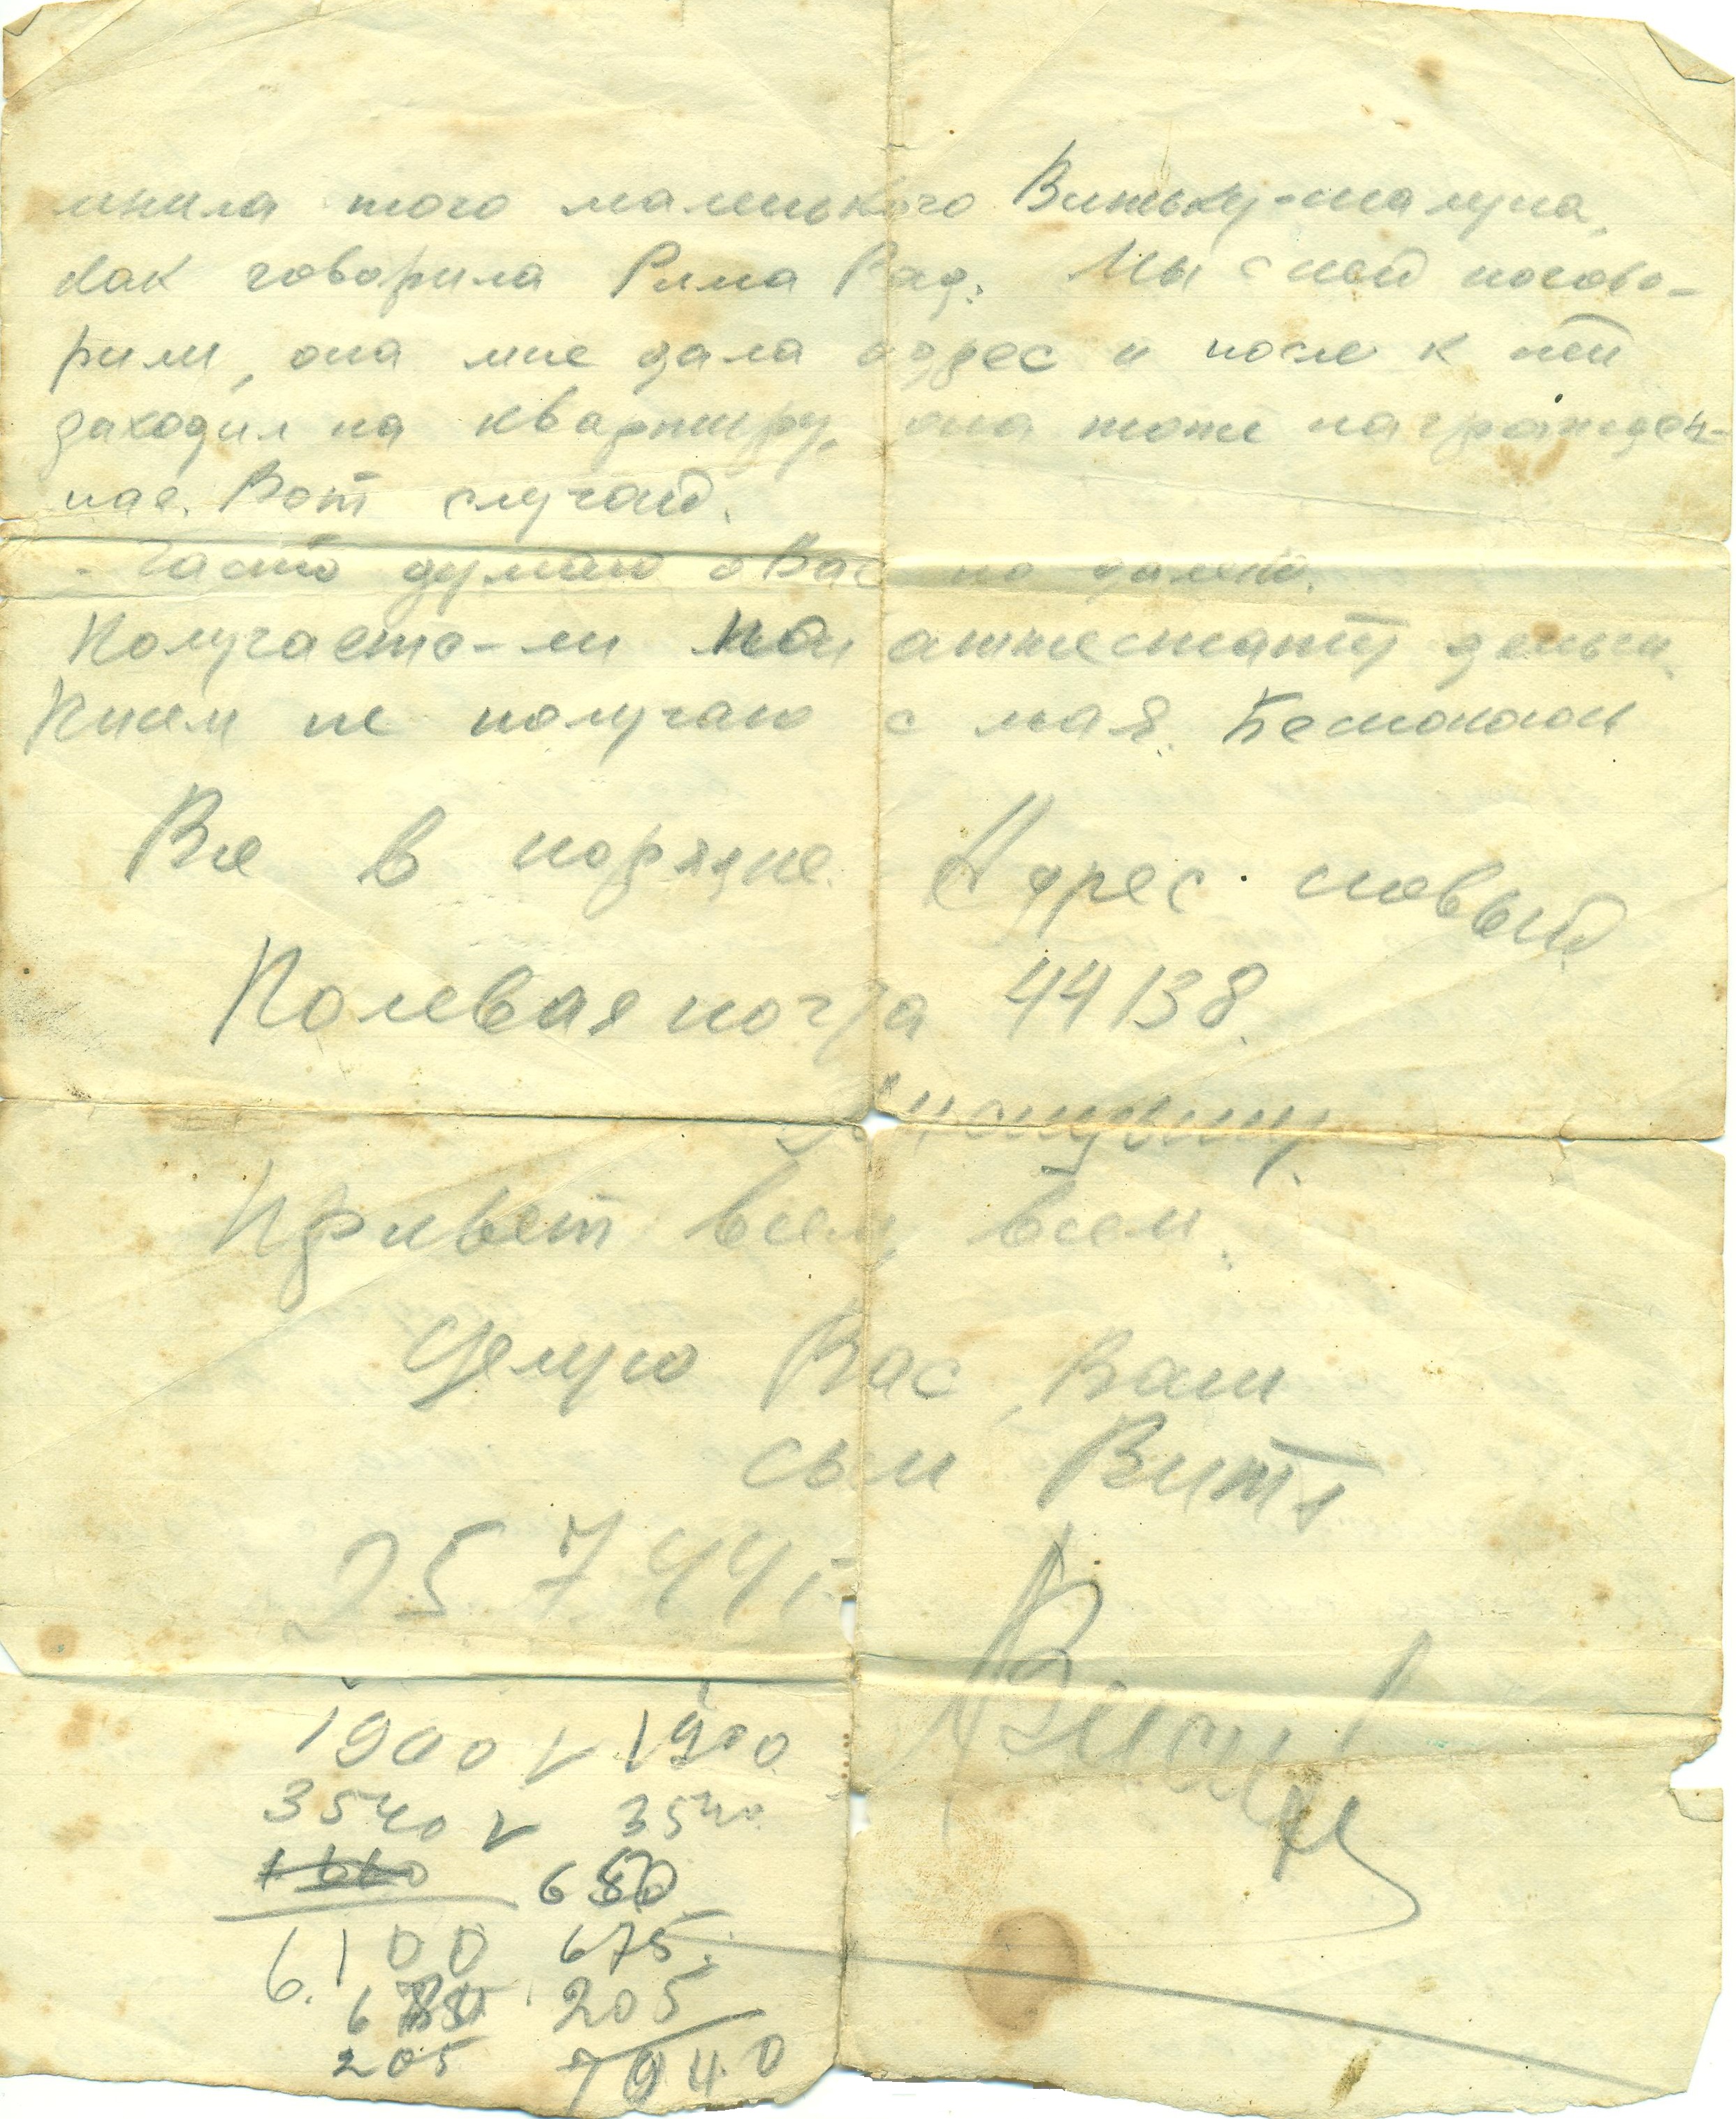 мнила того маленького Витьку-шалуна,
как говорила Рима Рад. Мы с ней погово-
рили, она мне дала адрес и после к ней
заходил на квартиру, она тоже награжден-
ная. Вот случай.
Часто думаю о Вас но далеко.
Получаете-ли по аттестату деньги.
Писем не получаю с мая. Беспокоюсь
Все в порядке. Адрес новый
Полевая почта 44138.
Привет всем, всем.
Целую Вас, Ваш
сын Витя
25 7 44 г.
1900 v 1900
3540 v 3540
650
6100 675
205
205
7040